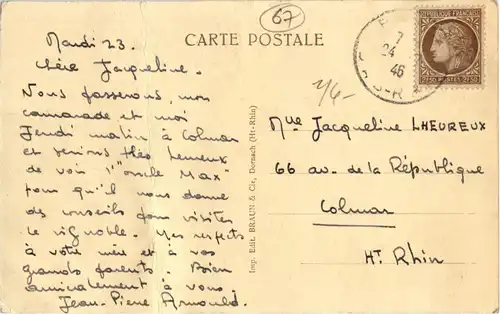 67
CARTE POSTALE
REPUBLIQUE FRANÇAISE
2F50 POSTES 2F50
7
24
46
Mardi 23.
Chère Jacqueline.
Nous passerons, mon
camarade et moi
Jeudi matin à Colmar
et serions très heureux
de voir l'"oncle Max"
pour qu'il nous donne
des conseils pour visiter
le vignoble. Mes respects
à votre mère et à vos
grands parents. Bien
amicalement à vous,
Jean-Pierre Arnould.
Imp. Edit. BRAUN & Cie, Dornach (Ht-Rhin)
Mlle Jacqueline LHEUREUX
66 av. de la République
Colmar
Ht Rhin